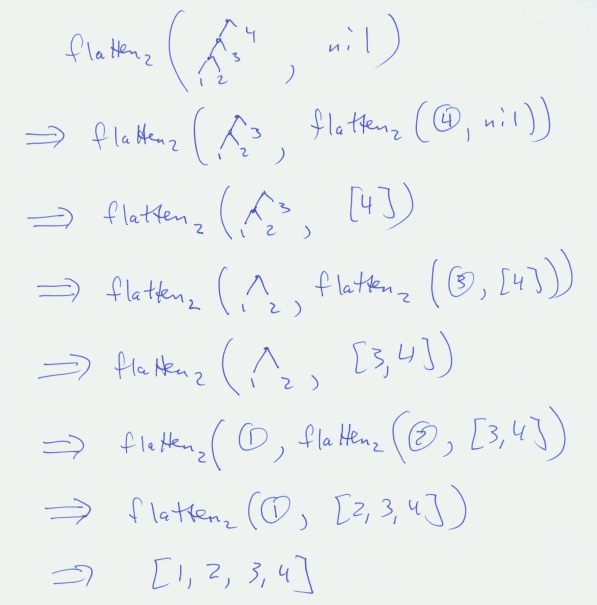 flatten₂ ( 1 2 3 4 , nil )
⇒ flatten₂ ( 1 2 3 , flatten₂ ( ④, nil ) )
⇒ flatten₂ ( 1 2 3 , [4] )
⇒ flatten₂ ( 1 2 , flatten₂ ( ③, [4] ) )
⇒ flatten₂ ( 1 2 , [3,4] )
⇒ flatten₂ ( ①, flatten₂ ( ②, [3,4] )
⇒ flatten₂ ( ①, [2,3,4] )
⇒ [1, 2, 3, 4]